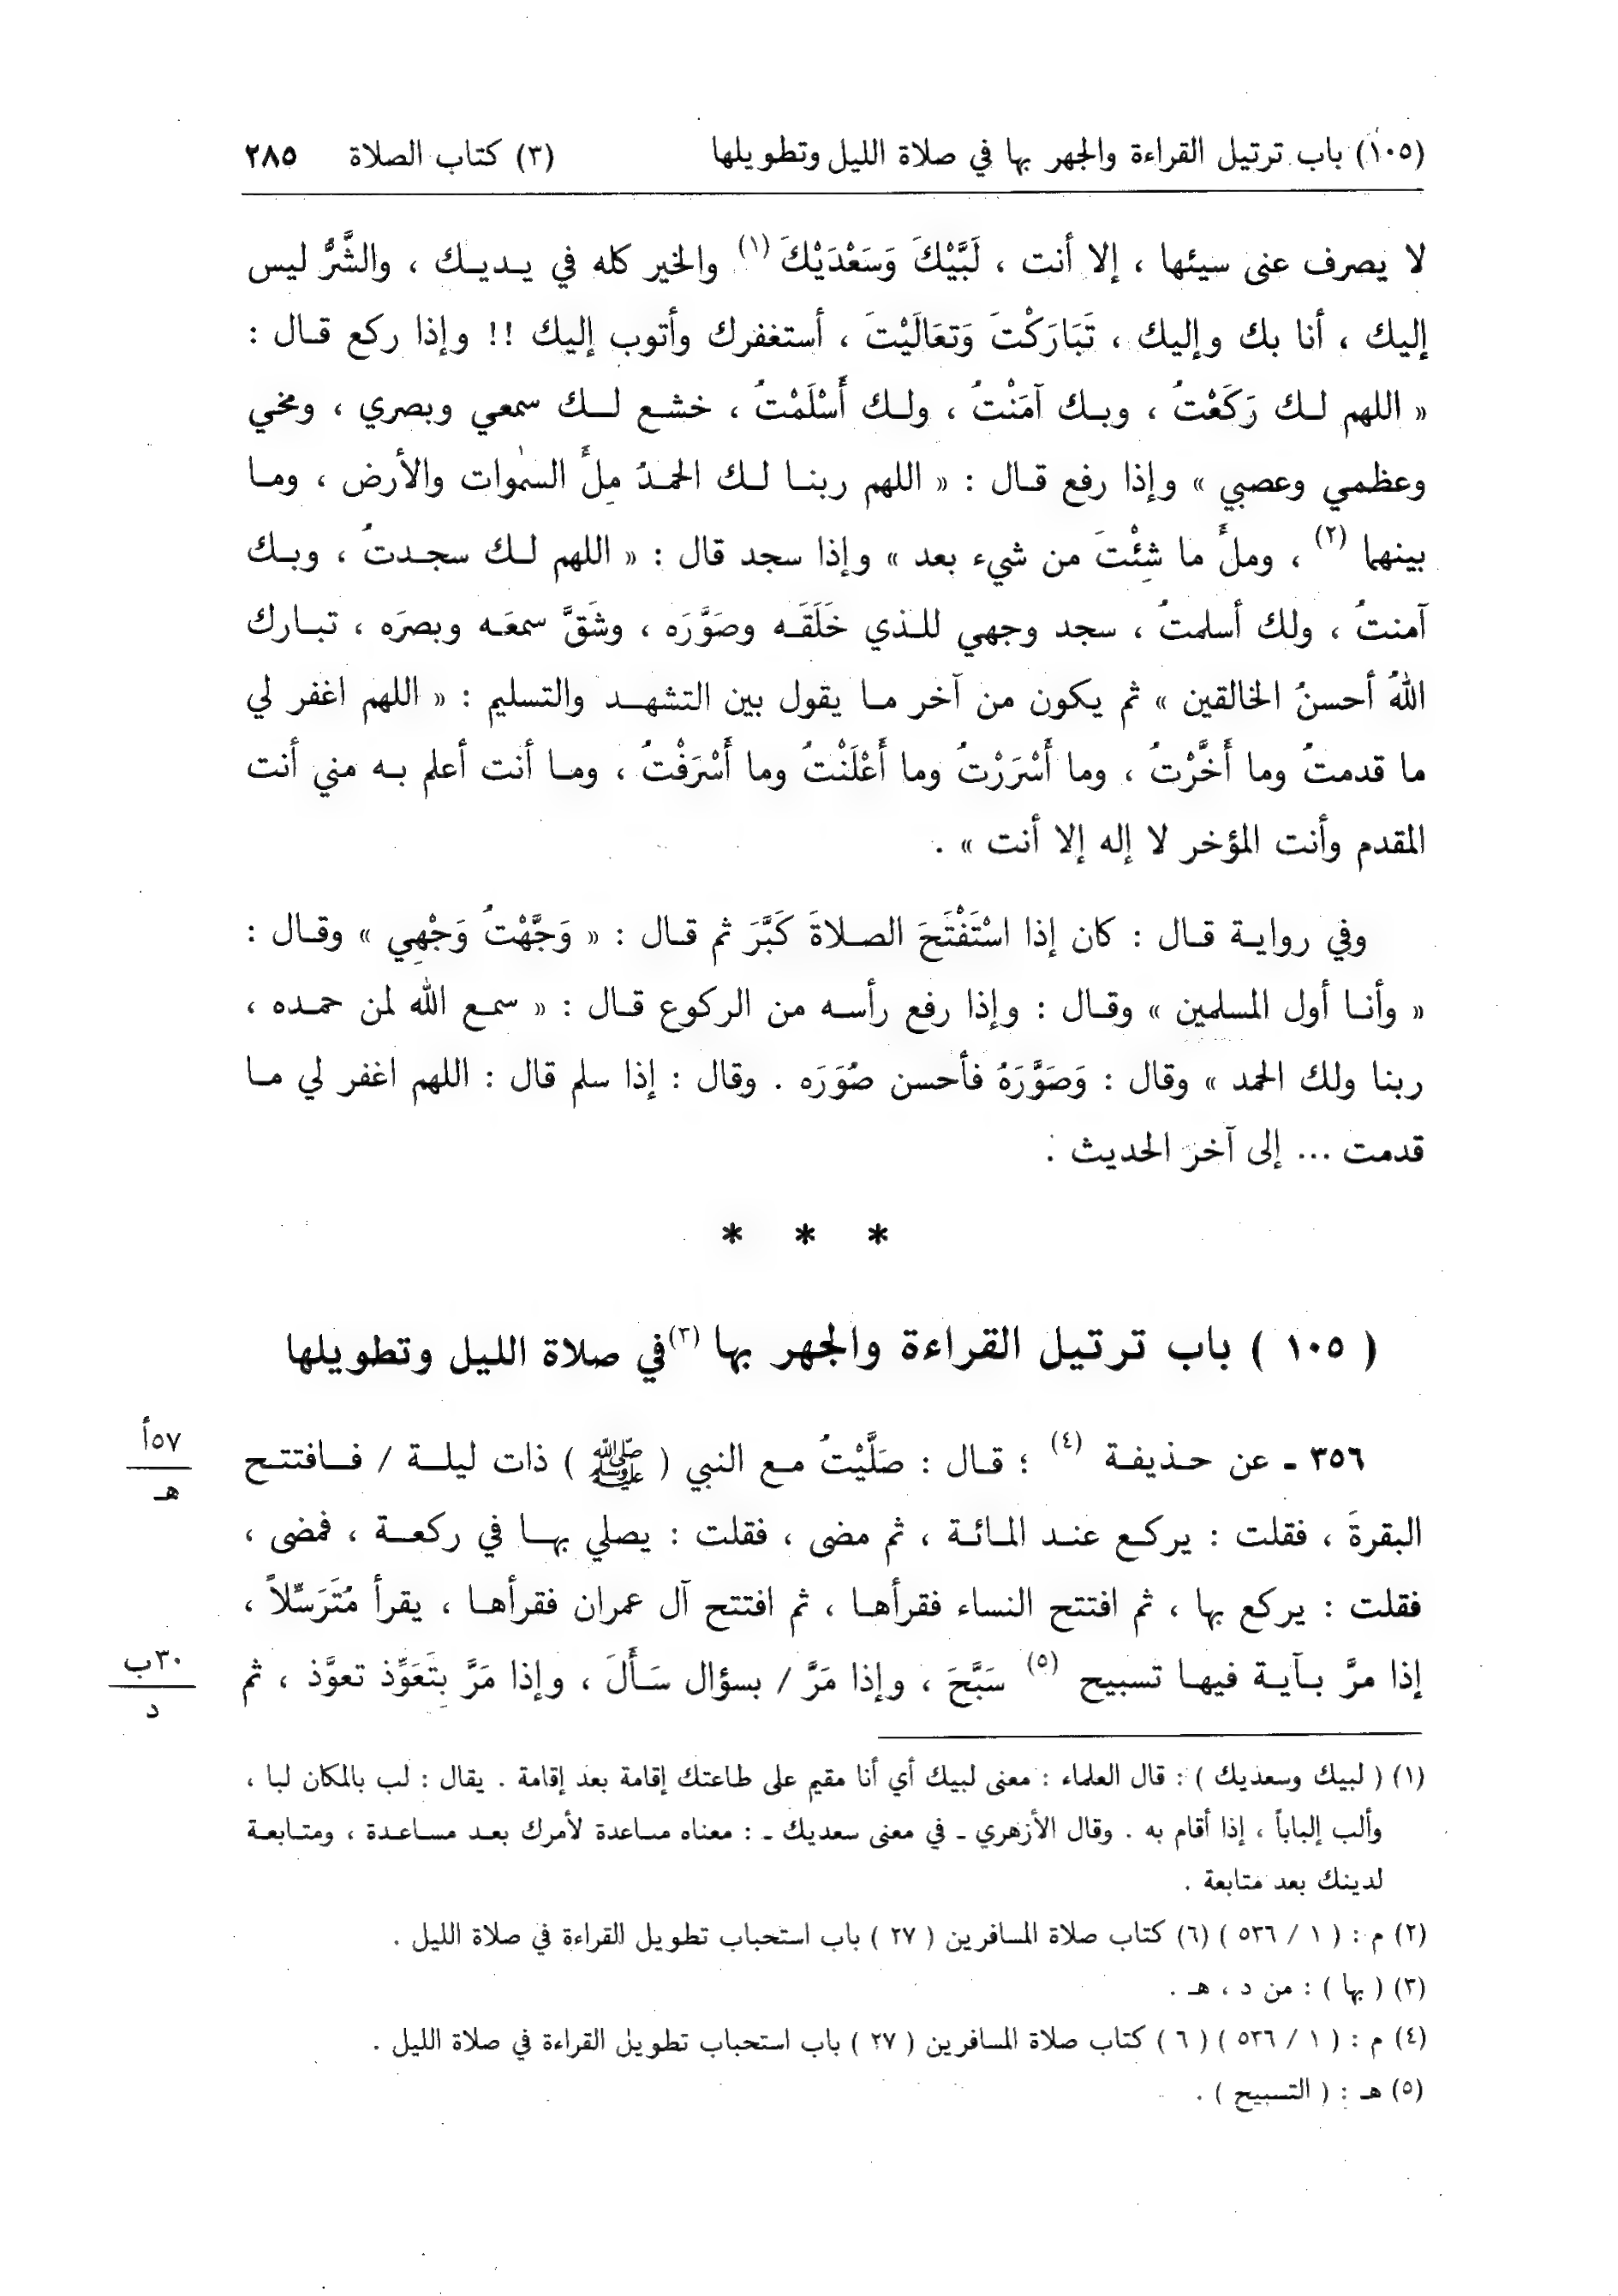 (١٠٥) باب ترتيل القراءة والجهر بها في صلاة الليل وتطويلها (٣) كتاب الصلاة ٢٨٥
لا يصرف عنى سيئها ، إلا أنت ، لَبَّيْكَ وَسَعْدَيْكَ (١) والخير كله في يديك ، والشَّرُّ ليس
إليك ، أنا بك وإليك ، تَبَارَكْتَ وَتعَالَيْتَ ، أستغفرك وأتوب إليك !! وإذا ركع قال :
« اللهم لك رَكَعْتُ ، وبك آمَنْتُ ، ولك أَسْلَمْتُ ، خشع لك سمعي وبصري ، ومخي
وعظمي وعصبي » وإذا رفع قال : « اللهم ربنا لك الحمدُ مِلأَ السمٰوات والأرض ، وما
بينهما (٢) ، وملأَ ما شِئْتَ من شيء بعد » وإذا سجد قال : « اللهم لك سجدتُ ، وبك
آمنتُ ، ولك أسلمتُ ، سجد وجهي للذي خَلَقَه وصَوَّرَه ، وشَقَّ سمعَه وبصرَه ، تبارك
اللهُ أحسنُ الخالقين » ثم يكون من آخر ما يقول بين التشهد والتسليم : « اللهم اغفر لي
ما قدمتُ وما أَخَّرْتُ ، وما أَسْرَرْتُ وما أَعْلَنْتُ وما أَسْرَفْتُ ، وما أنت أعلم به مني أنت
المقدم وأنت المؤخر لا إله إلا أنت » .
وفي رواية قال : كان إذا اسْتَفْتَحَ الصلاةَ كَبَّرَ ثم قال : « وَجَّهْتُ وَجْهِي » وقال :
« وأنا أول المسلمين » وقال : وإذا رفع رأسه من الركوع قال : « سمع الله لمن حمده ،
ربنا ولك الحمد » وقال : وَصَوَّرَهُ فأحسن صُوَرَه . وقال : إذا سلم قال : اللهم اغفر لي ما
قدمت ... إلى آخر الحديث .
* * *
( ١٠٥ ) باب ترتيل القراءة والجهر بها (٣) في صلاة الليل وتطويلها
٣٥٦ ـ عن حذيفة (٤) ؛ قال : صَلَّيْتُ مع النبي ( ﷺ ) ذات ليلة / فافتتح
٥٧أ
هـ
البقرةَ ، فقلت : يركع عند المائة ، ثم مضى ، فقلت : يصلي بها في ركعة ، فمضى ،
فقلت : يركع بها ، ثم افتتح النساء فقرأها ، ثم افتتح آل عمران فقرأها ، يقرأ مُتَرَسِّلاً ،
إذا مرَّ بآية فيها تسبيح (٥) سَبَّحَ ، وإذا مَرَّ / بسؤال سَأَلَ ، وإذا مَرَّ بِتَعَوِّذ تعوَّذ ، ثم
٣٠ب
د
(١) ( لبيك وسعديك ) : قال العلماء : معنى لبيك أي أنا مقيم على طاعتك إقامة بعد إقامة . يقال : لب بالمكان لبا ،
وألب إلباباً ، إذا أقام به . وقال الأزهري ـ في معنى سعديك ـ : معناه مساعدة لأمرك بعد مساعدة ، ومتابعة
لدينك بعد متابعة .
(٢) م : ( ١ / ٥٣٦ ) (٦) كتاب صلاة المسافرين ( ٢٧ ) باب استحباب تطويل القراءة في صلاة الليل .
(٣) ( بها ) : من د ، هـ .
(٤) م : ( ١ / ٥٣٦ ) ( ٦ ) كتاب صلاة المسافرين ( ٢٧ ) باب استحباب تطويل القراءة في صلاة الليل .
(٥) هـ : ( التسبيح ) .